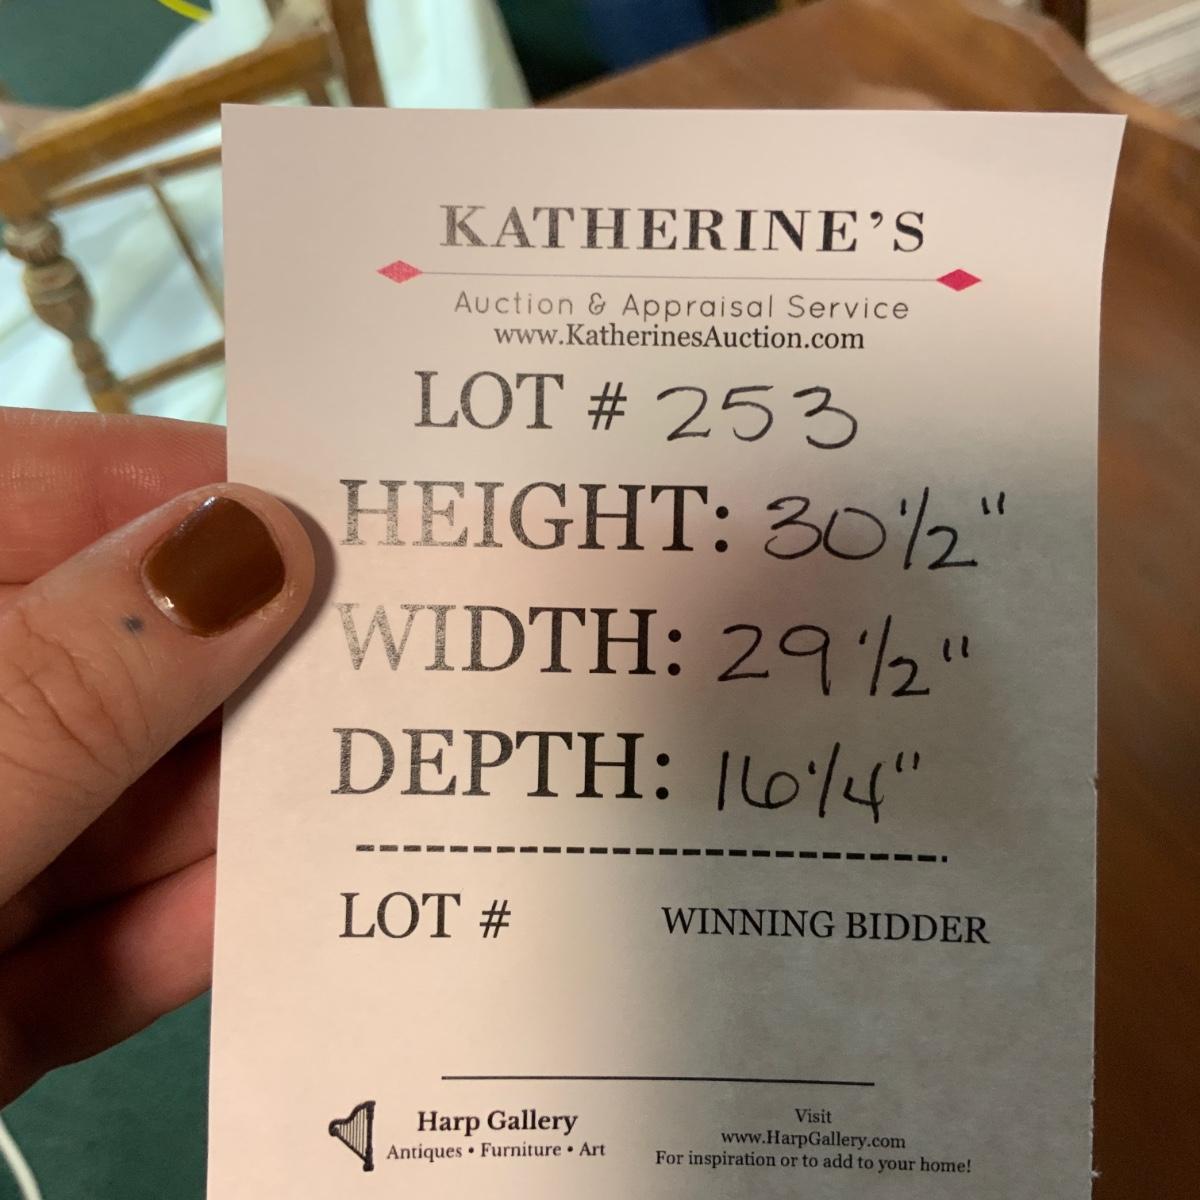 KATHERINE'S
Auction & Appraisal Service
www.KatherinesAuction.com
LOT # 253
HEIGHT: 30 1/2"
WIDTH: 29 1/2"
DEPTH: 16 1/4"
LOT # WINNING BIDDER
Harp Gallery
Antiques • Furniture • Art
Visit
www.HarpGallery.com
For inspiration or to add to your home!